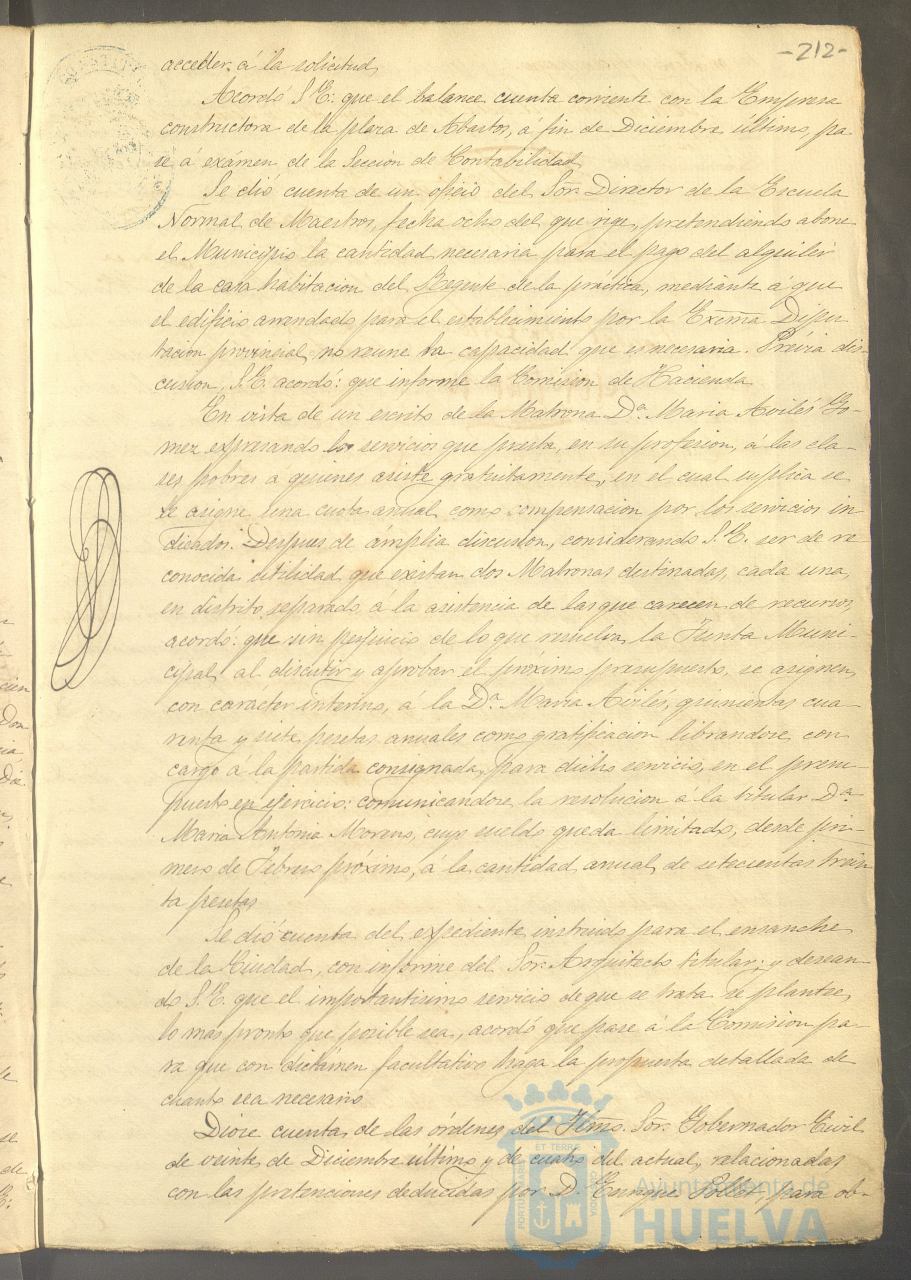 -212-
acceder á la solicitud.
Acordó S.E: que el balance cuenta corriente con la Empresa
constructora de la plaza de Abastos, á fin de Diciembre último, pa-
se á exámen de la Sección de Contabilidad.
Se dió cuenta de un oficio del Sor. Director de la Escuela
Normal de Maestros, fecha ocho del que rige, pretendiendo abone
el Municipio la cantidad necesaria para el pago del alquiler
de la casa habitacion del Regente de la práctica, mediante á que
el edificio arrendado para el establecimiento por la Exma Dipu-
tacion provincial, no reune la capacidad que es necesaria. Prévia dis-
cusion, S.E. acordó: que informe la Comision de Hacienda.
En vista de un escrito de la Matrona Da. Maria Avilés Go-
mez expresando los servicios que presta, en su profesion, á las cla-
ses pobres á quienes asiste gratuitamente, en el cual suplica se
le asigne una cuota anual como compensacion por los servicios in
dicados. Despues de ámplia discusion, considerando S.E. ser de re
conocida utilidad que existan dos Matronas destinadas, cada una,
en distrito separado, á la asistencia de las que carecen de recursos,
acordó: que sin perjuicio de lo que resuelva la Junta Muni-
cipal al discutir y aprobar el próximo presupuesto, se asignen,
con carácter interino, á la Da. Maria Avilés, quinientas cua-
renta y siete pesetas anuales como gratificacion librandose con
cargo á la partida consignada, para dicho servicio, en el presu-
puesto en ejercicio: comunicandose la resolucion á la titular Da.
Maria Antonia Moreno, cuyo sueldo queda limitado, desde pri-
mero de Febrero próximo, á la cantidad anual de setecientas trein
ta pesetas.
Se dió cuenta del expediente instruido para el ensanche
de la Ciudad, con informe del Sor. Arquitecto titular; y desean-
do S.E. que el importantisimo servicio de que se trata se plantee,
lo mas pronto que posible sea, acordó que pase á la Comision pa-
ra que con dictámen facultativo haga la propuesta detallada de
cuanto sea necesario.
Diose cuenta de las órdenes del Iltmo. Sor. Gobernador Civil
de veinte de Diciembre último y de cuatro del actual, relacionadas
con las pretenciones deducidas por D. Enrique para ob-
Ayuntamiento de
HUELVA